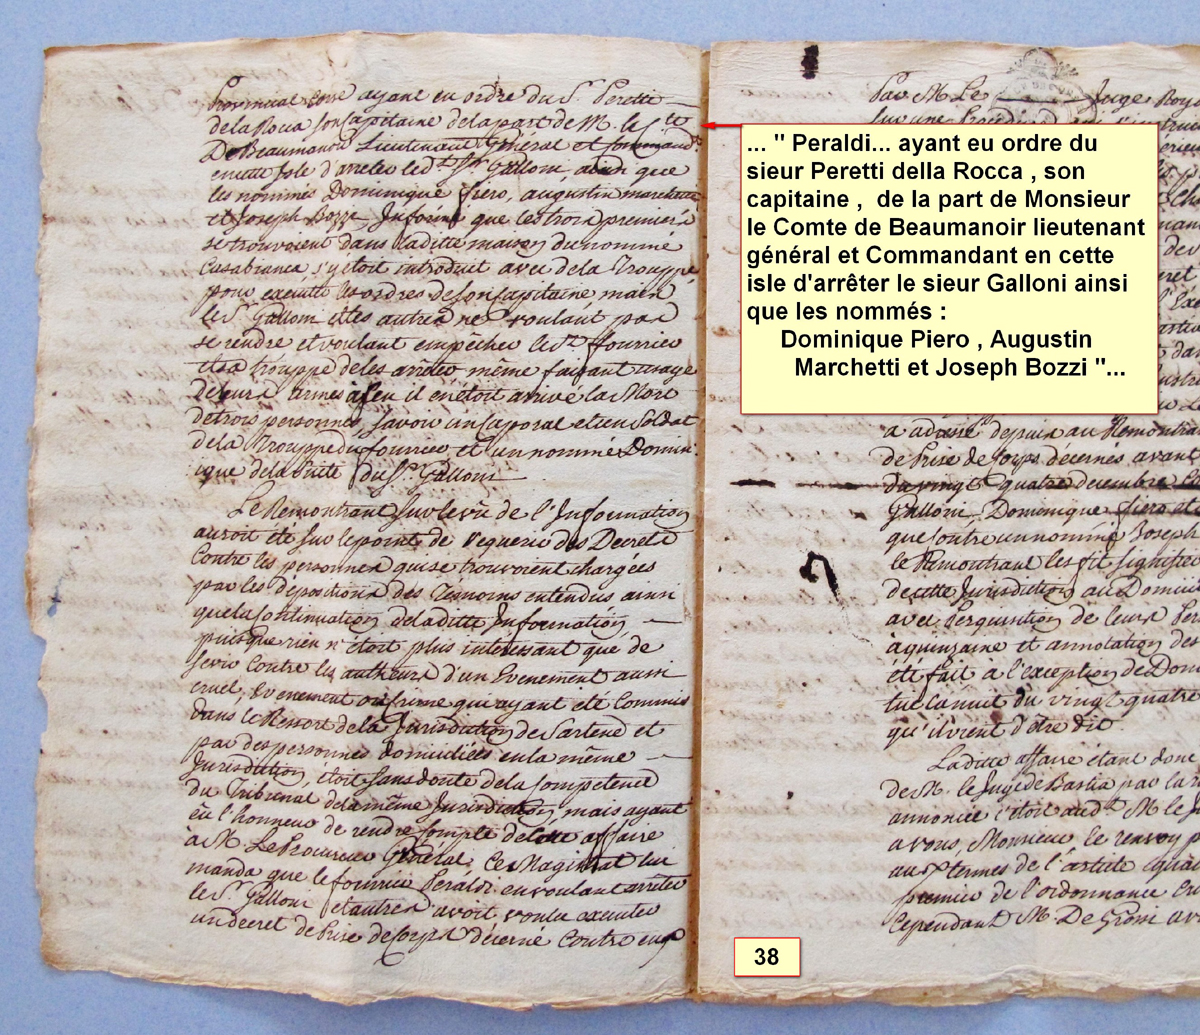 Provincial Corse ayant eu ordre du Sr. Peretti
de la Rocca son Capitaine de la part de M. le Cte
De Beaumanoir Lieutenant Général et Command.
en cette Isle d'arreter le dt. Sr. Galloni, ainsi que
les nommés Dominique Piero, augustin marchetti
et Joseph Bozzi, Informé que les trois premiers
se trouvoient dans laditte maison du nommé
Casabianca s'y étoit introduit avec de la Trouppe
pour executter les ordres de son Capitaine mais
le Sr. Galloni et les autres ne voulant pas
se rendre et voulant empecher le Sr. fourrier
et sa trouppe de les arréter même faisant usage
de leurs armes à feu il en étoit arrivé la Mort
de trois personnes, savoir un Caporal et un Soldat
de la Trouppe du fourrier et un nommé Domin
ique de la suite du Sr. Galloni
Le Remontrant sur le vû de l'Information
auroit été sur le point de requerir des Decrets
Contre les personnes qui se trouvoient chargées
par les dépositions des Temoins entendus ainsi
que la Continuation de laditte Information
puisque rien n'étoit plus intéressant que de
sevir Contre les autheurs d'un Evenement aussi
cruel, Evenement ou Crime qui ayant été Commis
dans le Ressort de la Jurisdiction de Sartene et
par des personnes domiciliées en la même
Jurisdiction, étoit sans doute de la Competence
du Tribunal de la même Jurisdiction, mais ayant
eu l'honneur de rendre Compte de cette affaire
à M. Le Procureur Général, Ce Magistrat lui
manda que le fourrier Peraldi en voulant arréter
le Sr. Galloni et autres avoit voulu executer
un decret de Prise de Corps décerné Contre eux
Par M. Le Juge Roya
... " Peraldi... ayant eu ordre du
sieur Peretti della Rocca , son
capitaine , de la part de Monsieur
le Comte de Beaumanoir lieutenant
général et Commandant en cette
isle d'arrêter le sieur Galloni ainsi
que les nommés :
Dominique Piero , Augustin
Marchetti et Joseph Bozzi "...
depuis au Remontra
de Prise de Corps décernés avant
du vingt quatre decembre
Galloni, Dominique Piero et
que Contre un nommé Joseph
le Remontrant les fit signifier
de cette Jurisdiction au Domici
avec Perquisition de leurs Per
à quinzaine et annotation de
été fait à l'exception de Dom
tué la nuit du vingt quatre
qu'il vient d'être dit
Laditte affaire étant donc
de M. le Juge de Bastia par la
annoncé c'étoit aud. M. le J
a vous, Monsieur le renvoy p
aux termes de l'article
premier de l'ordonnance Cri
Cependant M. De
38